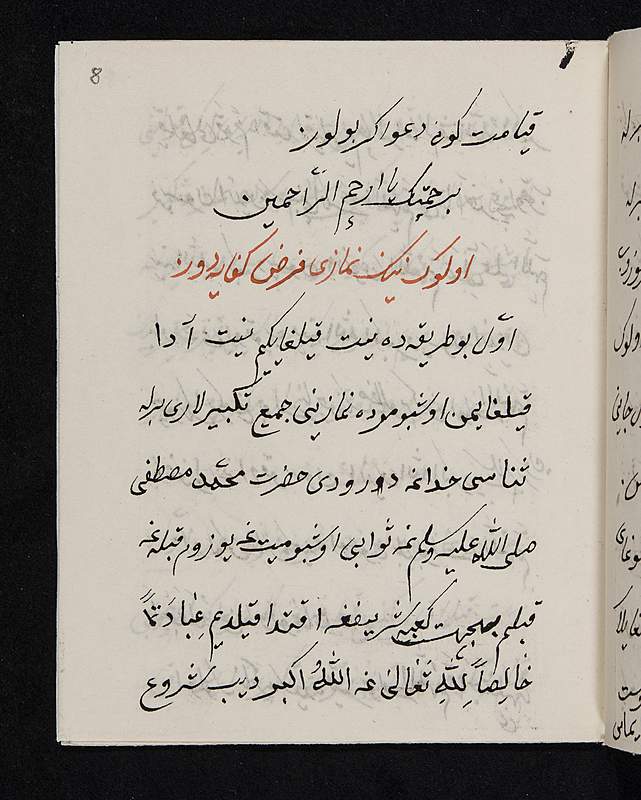 8
قیامت کون دعواکر بولور
برحمتک یا ارحم الرّاحمین
اولوک نینک نمازی فرض کفایه دور
اوّل بو طریقه ده نیت قیلغایکیم نیت آدا
قیلغایمن اوشبو مرده نمازینی جمیع تکبیرلاری برله
ثناسی خداغه درودی حضرت محمّد مصطفی
صلی الله علیه وسلم غه ثوابی اوشبو میت غه یوزوم قبله غه
قبلم بجهت کعبه شریفغه اقتدا قیلدیم عِبادَتاً
خالِصاً لِلّهِ تَعٰالیٰ غه اَللّهُ اکبر دیب شروع